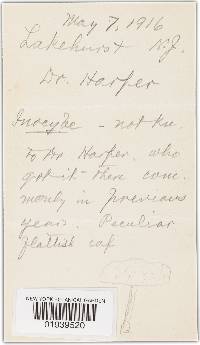 May 7, 1916
Lakehurst N.J.
Dr. Harper
Inocybe - not kn.
to Dr Harper, who
got it there com.
monly in previous
years. Peculiar
flattish cap
NEW YORK BOTANICAL GARDEN
01039520